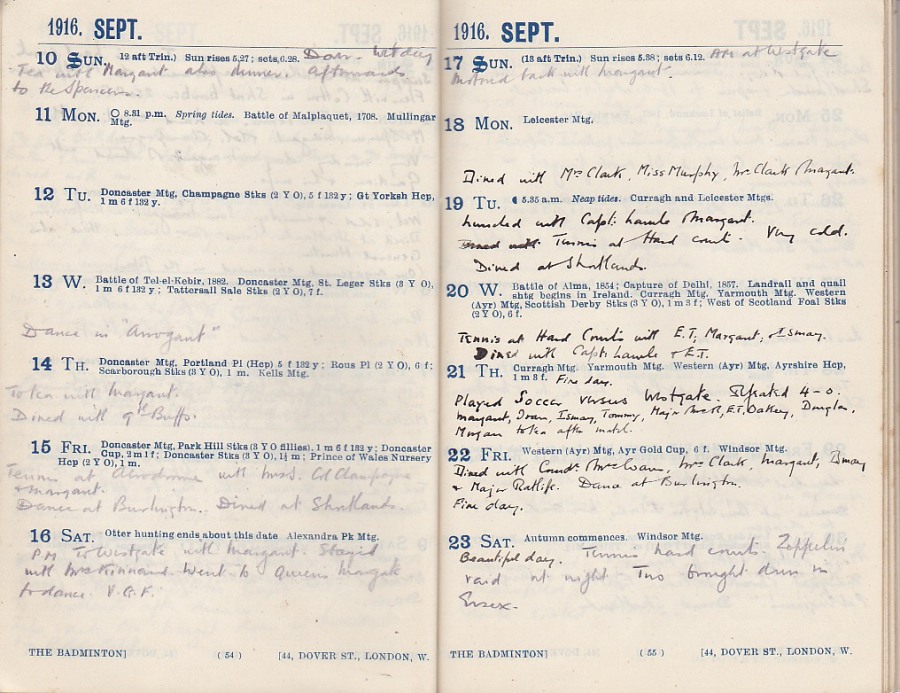 1916. SEPT.
10 SUN. 12 aft Trin.) Sun rises 5.27; sets, 6.28. Wet day
Tea with Margaret also dinner. Afterwards
to the Spencers.
11 MON. 8.31 p.m. Spring tides. Battle of Malplaquet, 1708. Mullingar
Mtg.
12 TU. Doncaster Mtg, Champagne Stks (2 Y O), 5 f 132 y; Gt Yorksh Hcp,
1 m 6 f 132 y.
13 W. Battle of Tel-el-Kebir, 1882. Doncaster Mtg, St. Leger Stks (3 Y O),
1 m 6 f 132 y; Tattersall Sale Stks (2 Y O), 7 f.
Dance in "Arrogant"
14 TH. Doncaster Mtg, Portland Pl (Hcp) 5 f 132 y; Rous Pl (2 Y O), 6 f;
Scarborough Stks (3 Y O), 1 m. Kells Mtg.
To tea with Margaret.
Dined with 9th Buffs.
15 FRI. Doncaster Mtg, Park Hill Stks (3 Y O fillies), 1 m 6 f 132 y; Doncaster
Cup, 2 m 1 f; Doncaster Stks (3 Y O), 1½ m; Prince of Wales Nursery
Hcp (2 Y O), 1 m.
Tennis at Aerodrome with
& Margaret.
Dance at Burlington. Dined at Shortlands.
16 SAT. Otter hunting ends about this date. Alexandra Pk Mtg.
P.M. To Westgate with Margaret. Stayed
with Mrs Kinnaird. Went to Queens Margate
to dance. V.G.F.
THE BADMINTON] (54) [44, DOVER ST., LONDON, W.
1916. SEPT.
17 SUN. (13 aft Trin.) Sun rises 5.38; sets 6.12. AM at Westgate
Motored back with Margaret.
18 MON. Leicester Mtg.
Dined with Mrs Clark, Miss Murphy, Mr Clark Margaret.
19 TU. 5.35 a.m. Neap tides. Curragh and Leicester Mtgs.
Lunched with Capt. Margaret.
Dined with Tennis at Hard court. Very cold.
Dined at Shortlands.
20 W. Battle of Alma, 1854; Capture of Delhi, 1857. Landrail and quail
shtg begins in Ireland. Curragh Mtg. Yarmouth Mtg. Western
(Ayr) Mtg, Scottish Derby Stks (3 Y O), 1 m 3 f; West of Scotland Foal Stks
(2 Y O), 6 f.
Tennis at Hard Courts with E.T, Margaret, & Ismay.
Dined with Capt. & E.T.
21 TH. Curragh Mtg. Yarmouth Mtg. Western (Ayr) Mtg, Ayrshire Hcp,
1 m 3 f. Fine day.
Played Soccer versus Westgate. Defeated 4-0.
Margaret, Ismay, Tommy, Major E.T, Oakey, Douglas,
Morgan to tea after match.
22 FRI. Western (Ayr) Mtg, Ayr Gold Cup, 6 f. Windsor Mtg.
Dined with Mrs Clark, Margaret, Ismay
& Major Ratliff. Dance at Burlington.
Fine day.
23 SAT. Autumn commences. Windsor Mtg.
Beautiful day. Tennis hard courts. Zeppelin
raid at night Two brought down in
Essex.
THE BADMINTON] (55) [44, DOVER ST., LONDON, W.